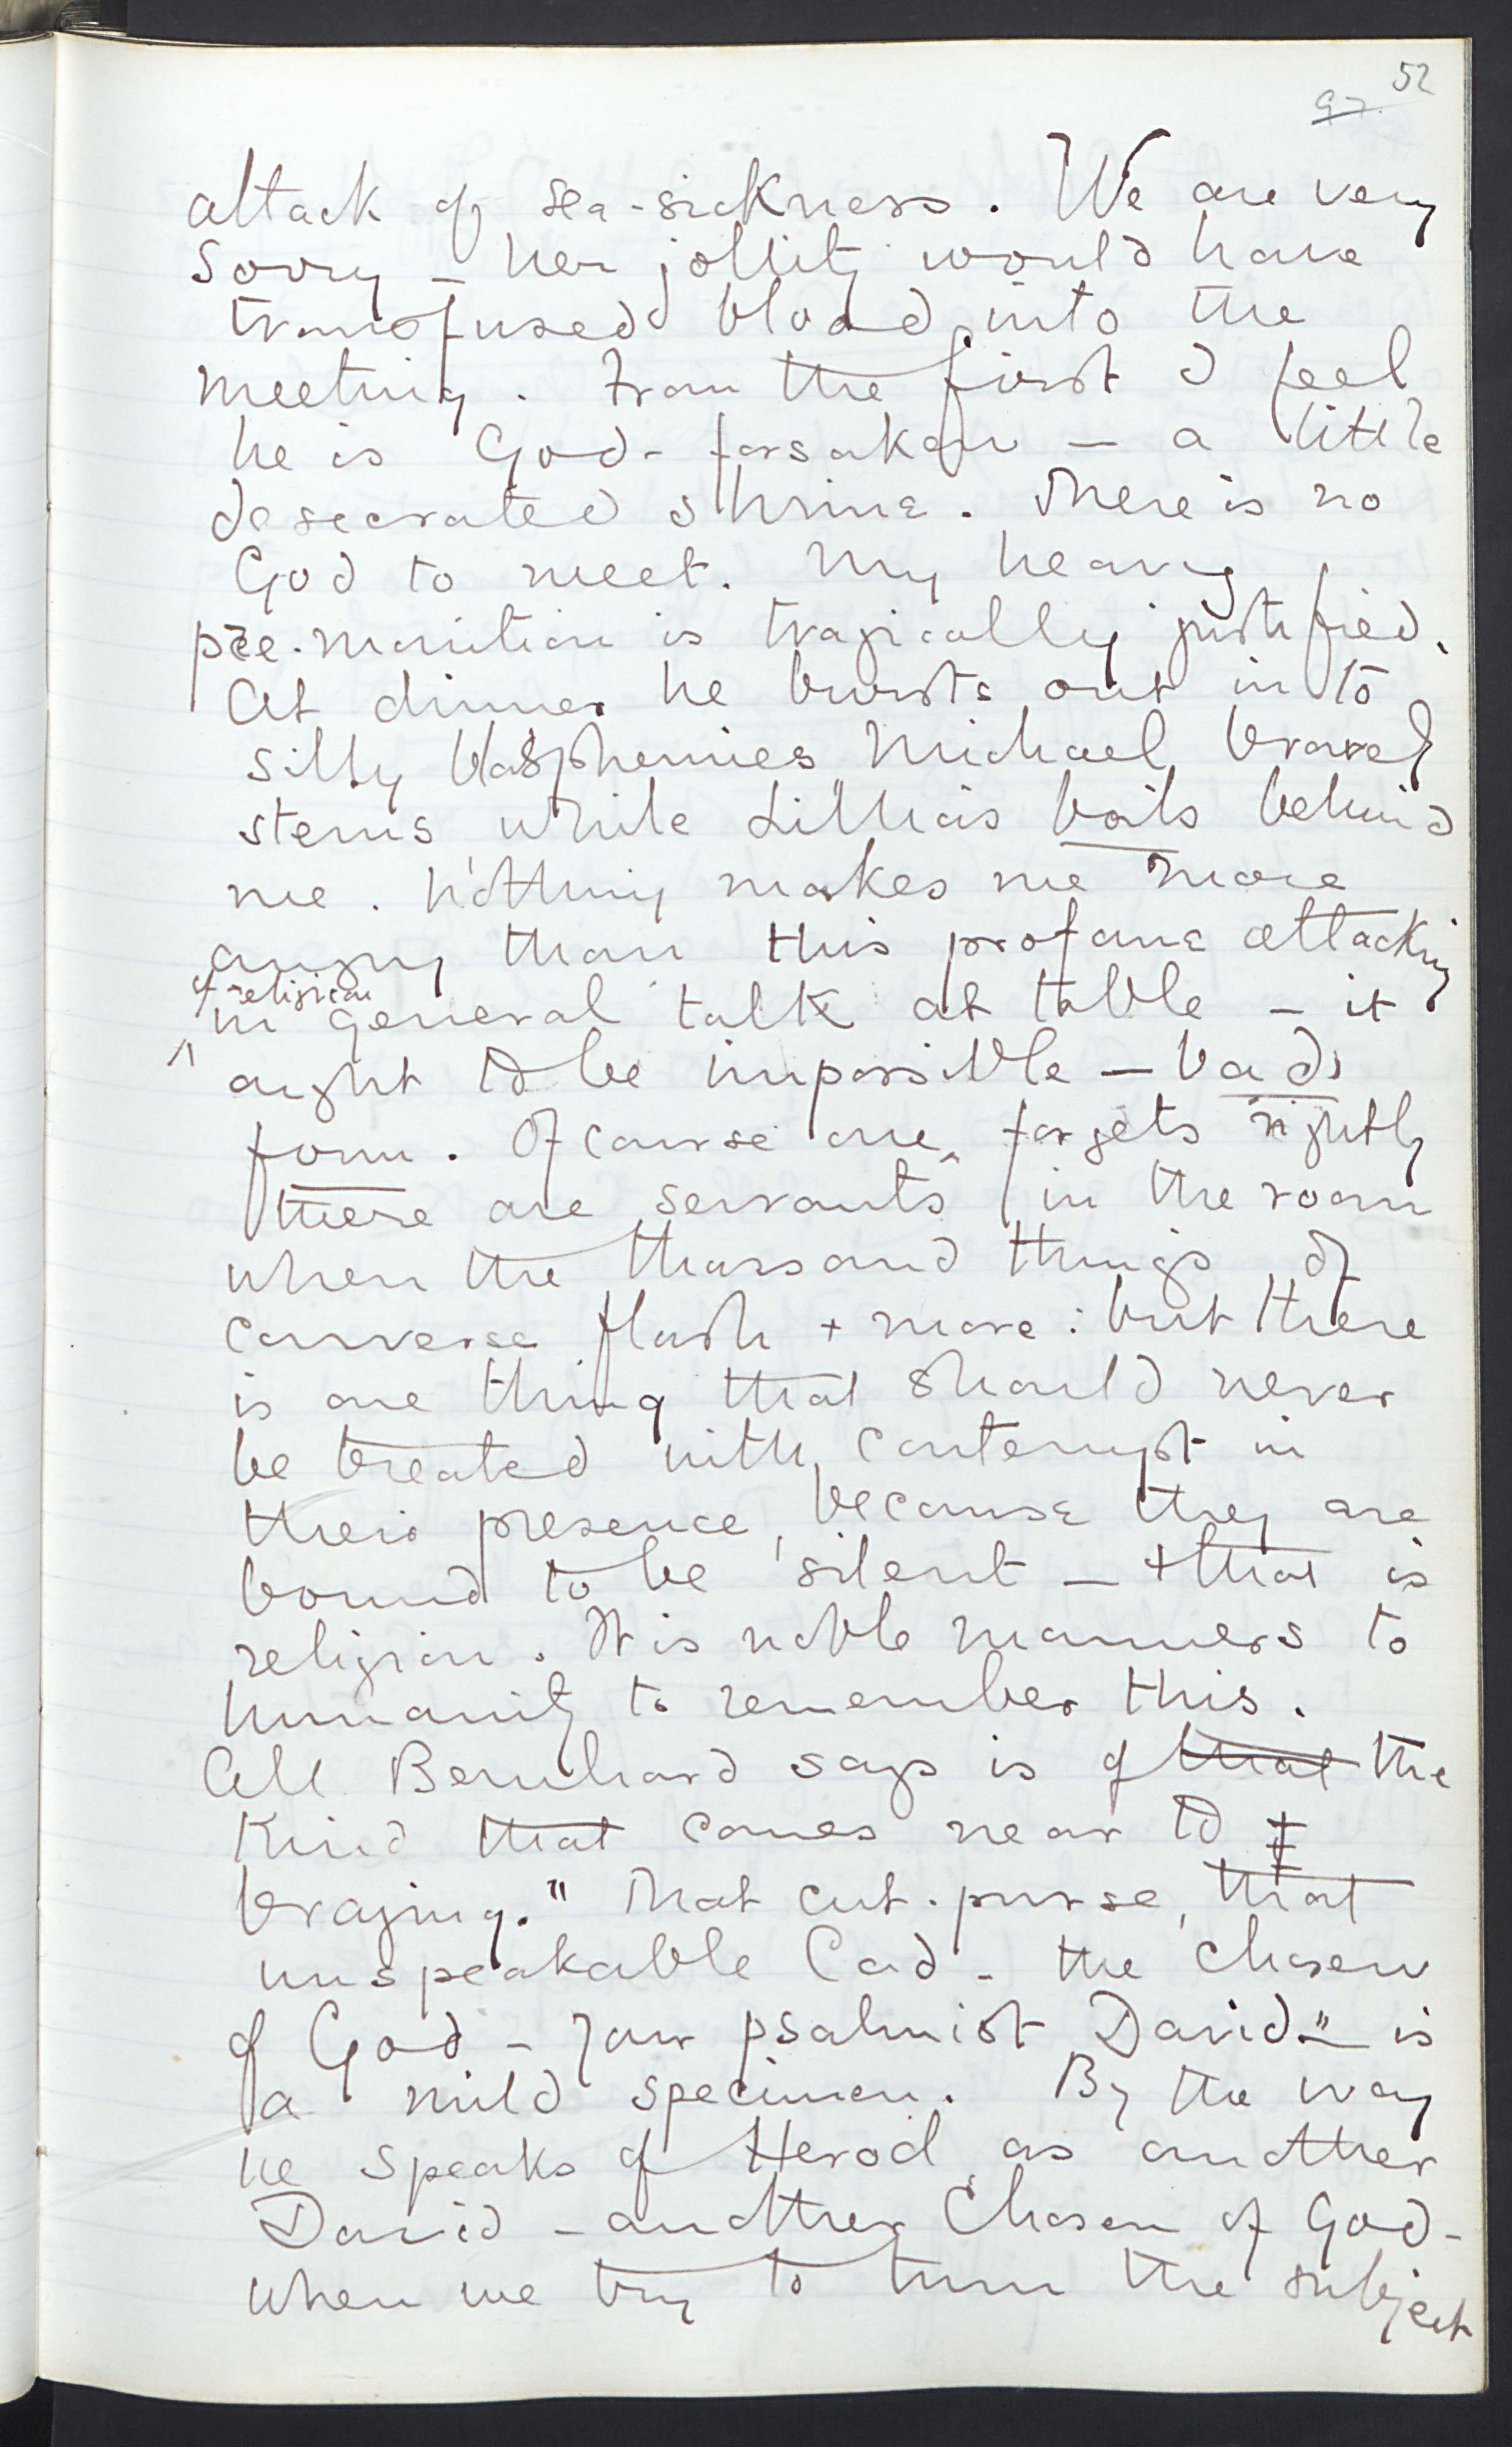 52
97.
attack of sea-sickness. We are very
sorry – her jollity would have
transfused blood into the
meeting. From the first I feel
he is God-forsaken – a little
desecrated shrine. There is no
God to meet. My heavy
pre-monition is tragically justified.
At dinner he bursts out in to
silly blasphemies Michael bravely
stems while Lillhais boils behind
me. Nothing makes me more
angry than this profane attacking
of religion
in general talk at table – it
ought to be impossible – bad
form. Of course one forgets rightly
there are servants in the room
when the thousand things of
converse flash + move: but there
is one thing that should never
be treated with contempt in
their presence, because they are
bound to be silent – + that is
religion. It is noble manners to
humanity to remember this.
All Bernhard says is of that the
kind that comes near to
braying. "That cut-purse, that
unspeakable Cad – the chosen
of God – your psalmist David" – is
a mild specimen. By the way
he speaks of Herod as another
David – another Chosen of God –
when we try to turn the subject